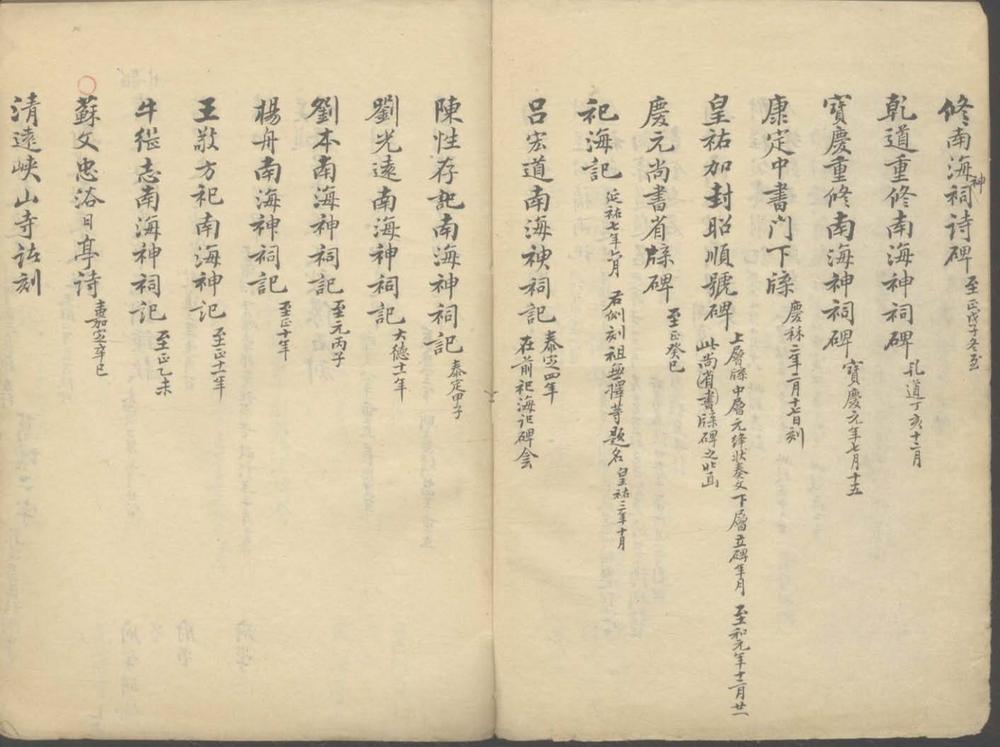 修南海神祠詩碑 至正戊子冬至
乾道重修南海神祠碑 乾道丁亥十二月
寶慶重修南海神祠碑 寶慶元年七月十五
康定中書門下牒 慶曆二年二月十七日刻
皇祐加封昭順號碑 上層牒中層元絳狀奏文下層立碑年月 至和元年十二月廿一
此尚書省牒碑之
慶元尚書省牒碑 至正癸巳
祀海記 延祐七年六月 右側刻祖無擇等題名 皇祐三年十月
呂宏道南海神祠記 泰定四年
在前祀海記碑
陳性存記南海神祠記 泰定甲子
劉光遠南海神祠記 大德十一年
劉本南海神祠記 至元丙子
楊舟南海神祠記 至正十年
王敬方祀南海神記 至正十一年
牛継志南海神祠記 至正乙未
蘇文忠浴日亭詩 嘉定辛巳
清遠峽山寺詁刻